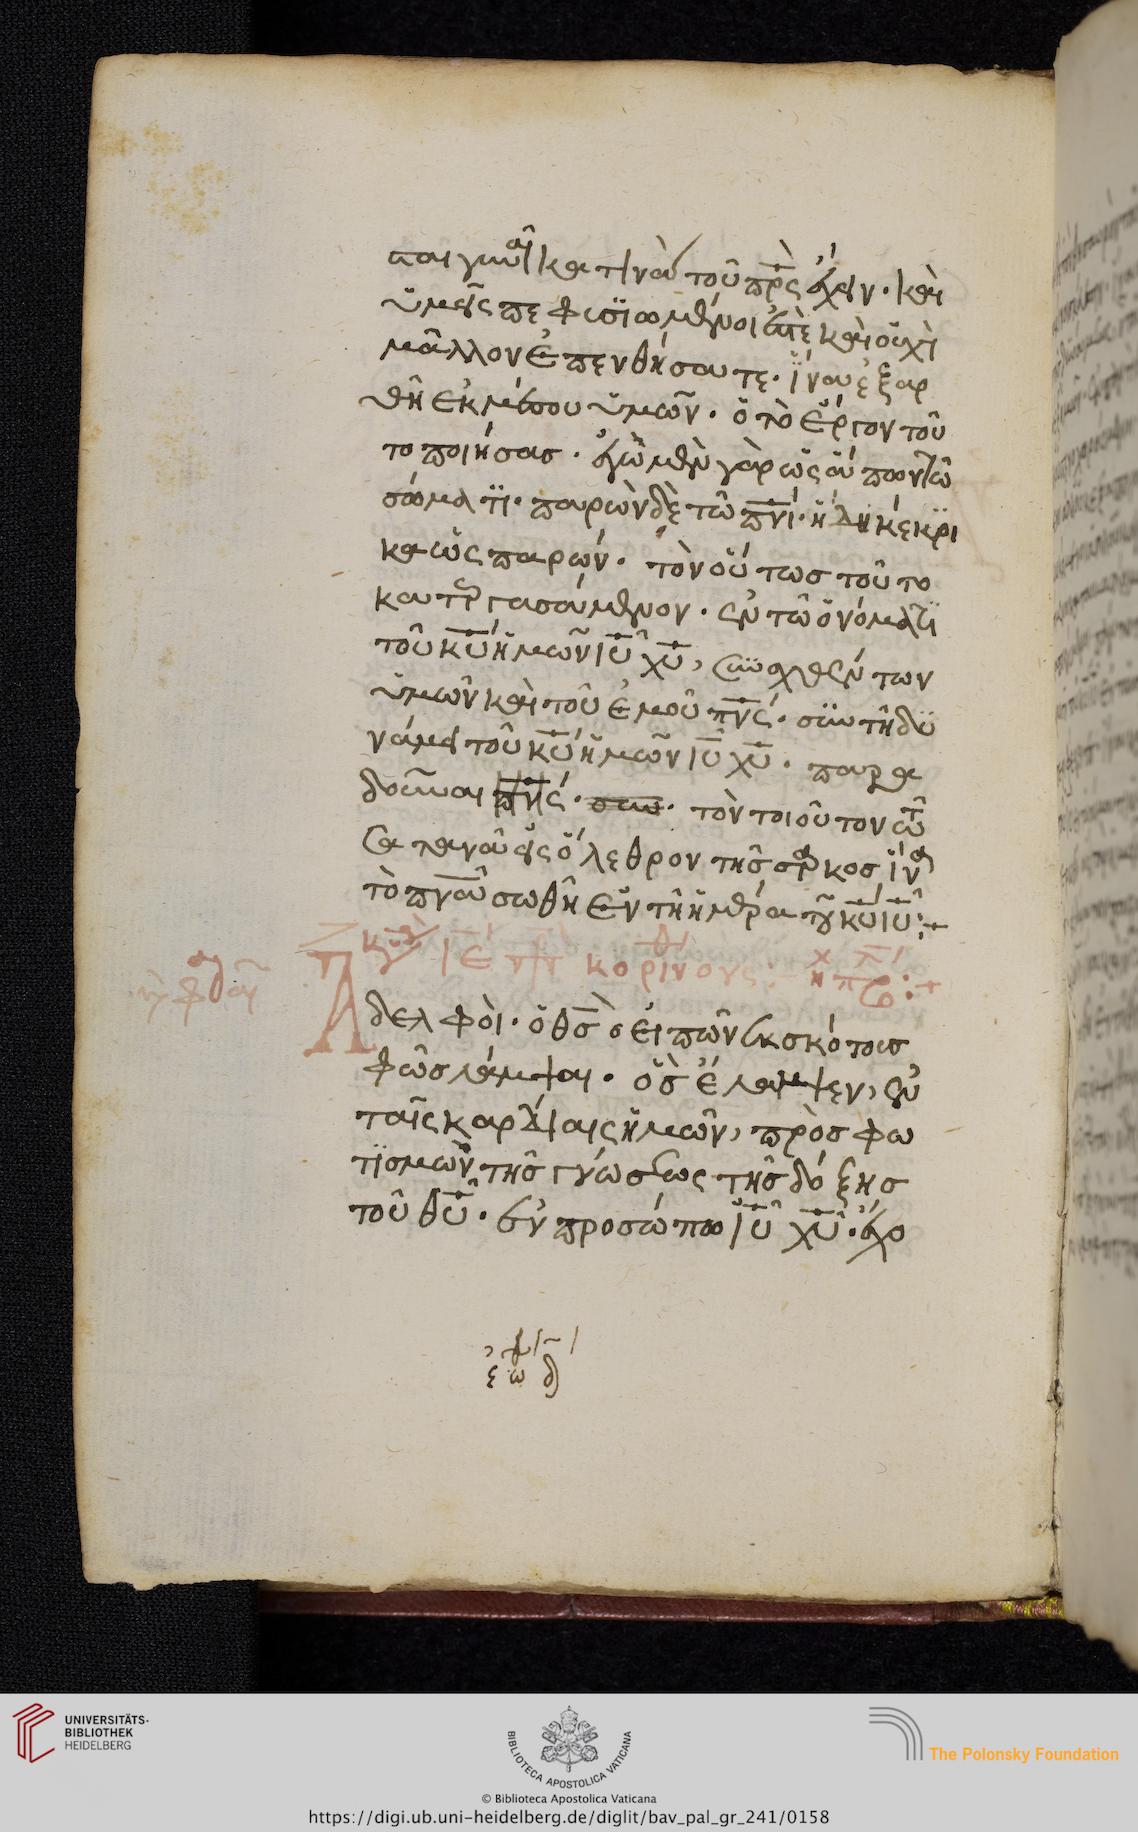 παι γυναῖκα τινὰ τοῦ πρς ἔχειν · καὶ
ὑμεῖς πεφυσϊωμένοι ἐστὲ καὶ οὐχὶ
μᾶλλον ἐπενθήσατε · ἵνα ἐξαρ
θῆ ἐκ μέσου ὑμῶν · ὁ τὸ ἔργον τοῦ
το ποιήσας · ἐγὼ μὲν γὰρ ὡς ἀπὼν τῶ
σώματϊ · παρὼν δὲ τῶ πνι · ἤδη κέκρι
κα ὡς παρών · τὸν οὕτως τοῦτο
κατεργασάμενον · ἐν τῶ ὀνόματϊ
τοῦ κυ ἡμῶν ιυ χυ, συναχθέντων
ὑμῶν καὶ τοῦ ἐμοῦ πνς · σὺν τῆ δυ
νάμει τοῦ κυ ἡμῶν ιυ χυ · παρα
δοῦναι πνς · συν · τὸν τοιοῦτον τῶ
Σατανᾶ εἰς ὄλεθρον τῆς σαρκος ἵνα
τὸ πνα σωθῆ ἐν τῆ ἡμέρα τοῦ κυ ιυ :+
κορινθους :
Ἀδελφοὶ · ὁ θς ὁ εἰπὼν ἐκ σκότους
φῶς λάμψαι · ὃς ἔλαμψεν, ἐν
ταῖς καρδίαις ἡμῶν, πρὸς φω
τϊσμὼν τῆς γνώσεως τῆς δόξης
τοῦ θυ · ἐν προσώπω ιυ χυ · ἔχο
UNIVERSITÄTS-
BIBLIOTHEK
HEIDELBERG
BIBLIOTECA APOSTOLICA VATICANA
The Polonsky Foundation
© Biblioteca Apostolica Vaticana
https://digi.ub.uni-heidelberg.de/diglit/bav_pal_gr_241/0158